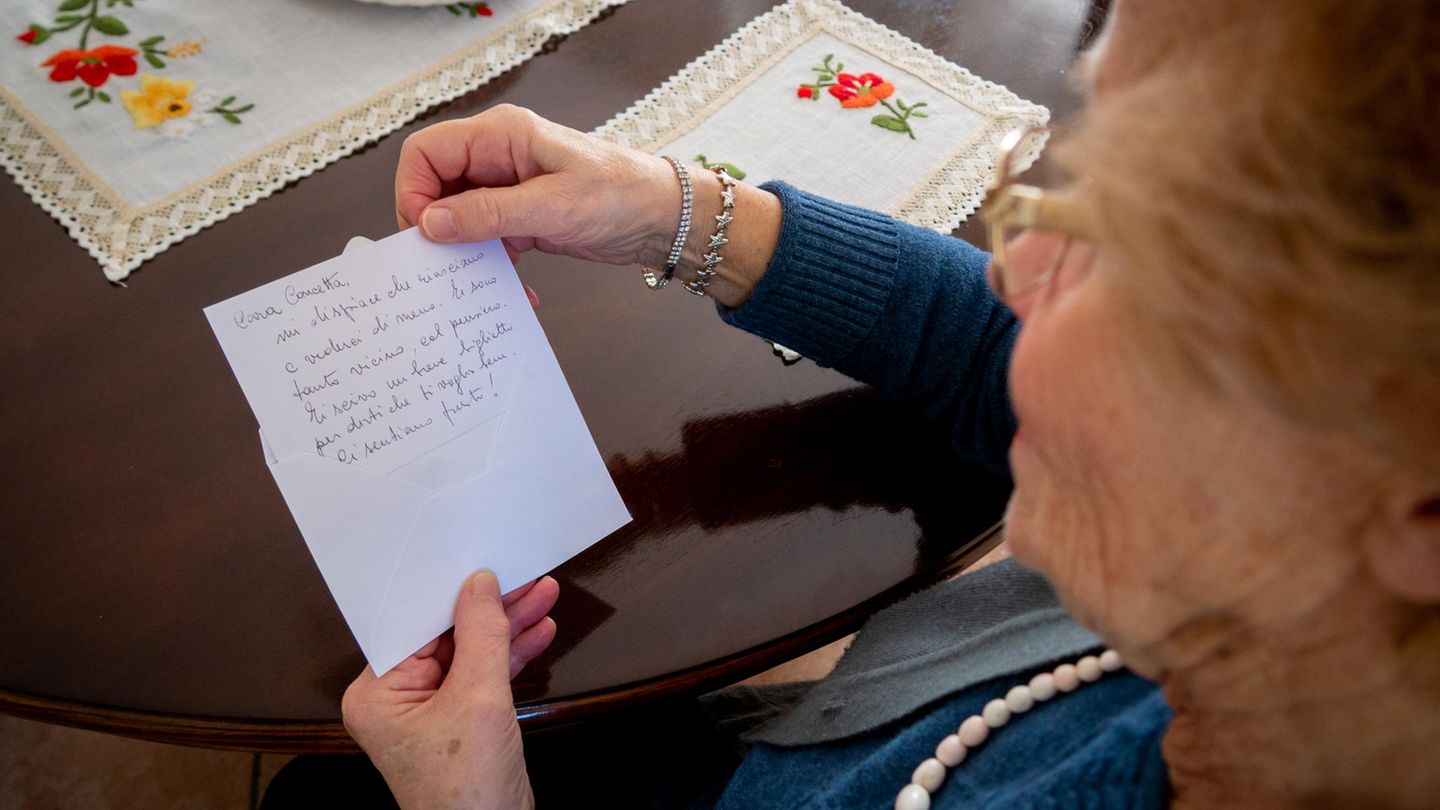 Cara Concetta,
mi dispiace che riusciamo
a vederci di meno. Ti sono
tanto vicino, col pensiero.
Ti scrivo un breve biglietto
per dirti che ti voglio bene.
Ci sentiamo presto!